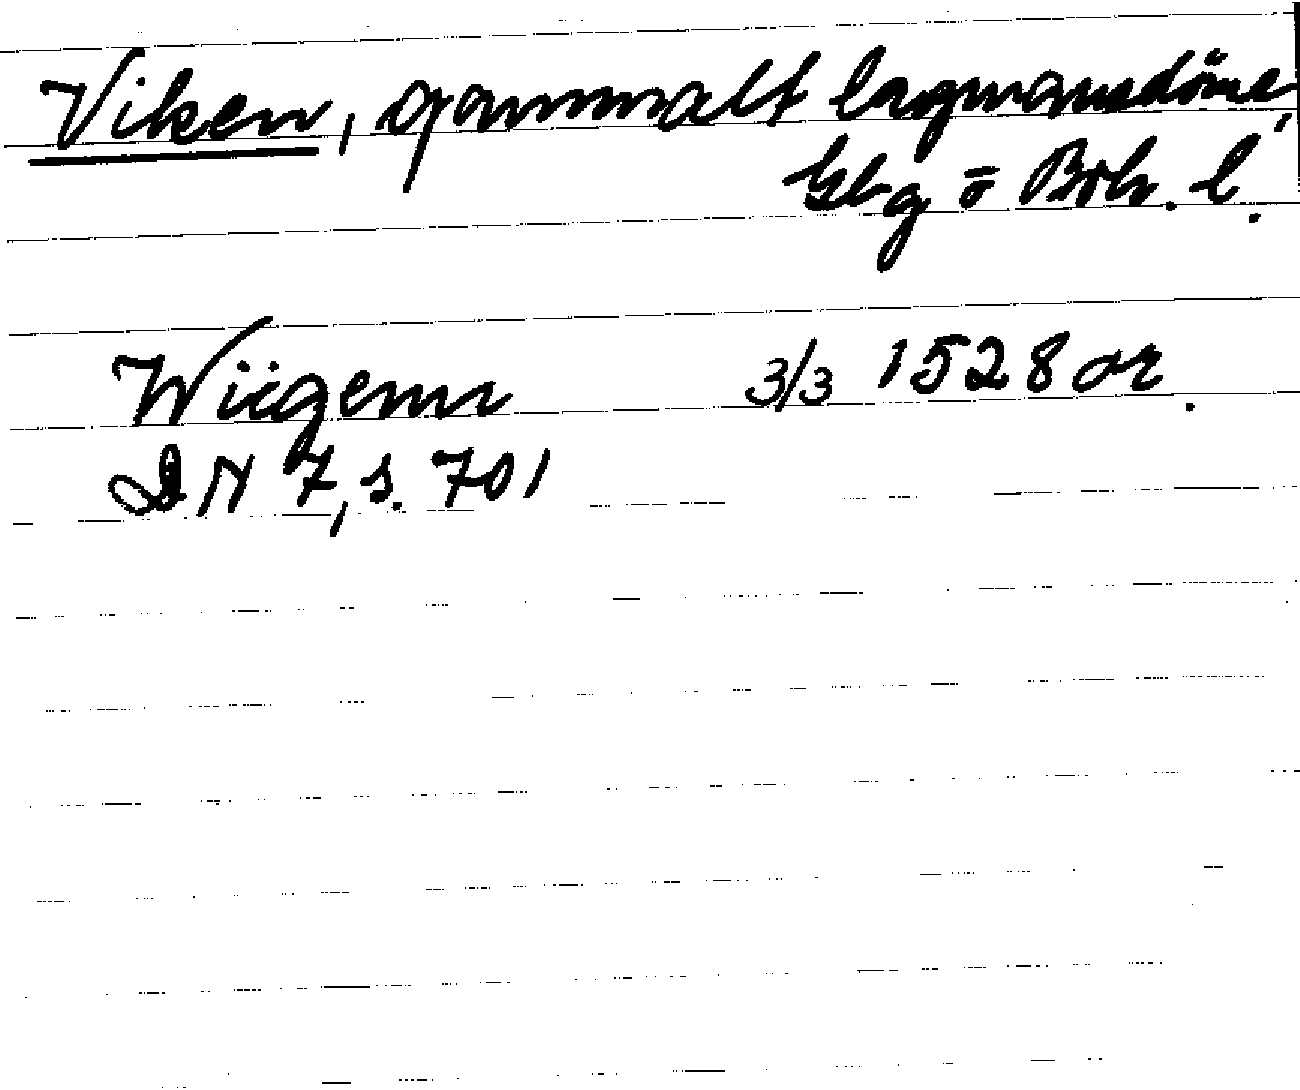 Viken, gammalt lagmansdöme,
Gbg o Boh. l.
Wiigenn 3/3 1528 or.
DN 7, s. 701